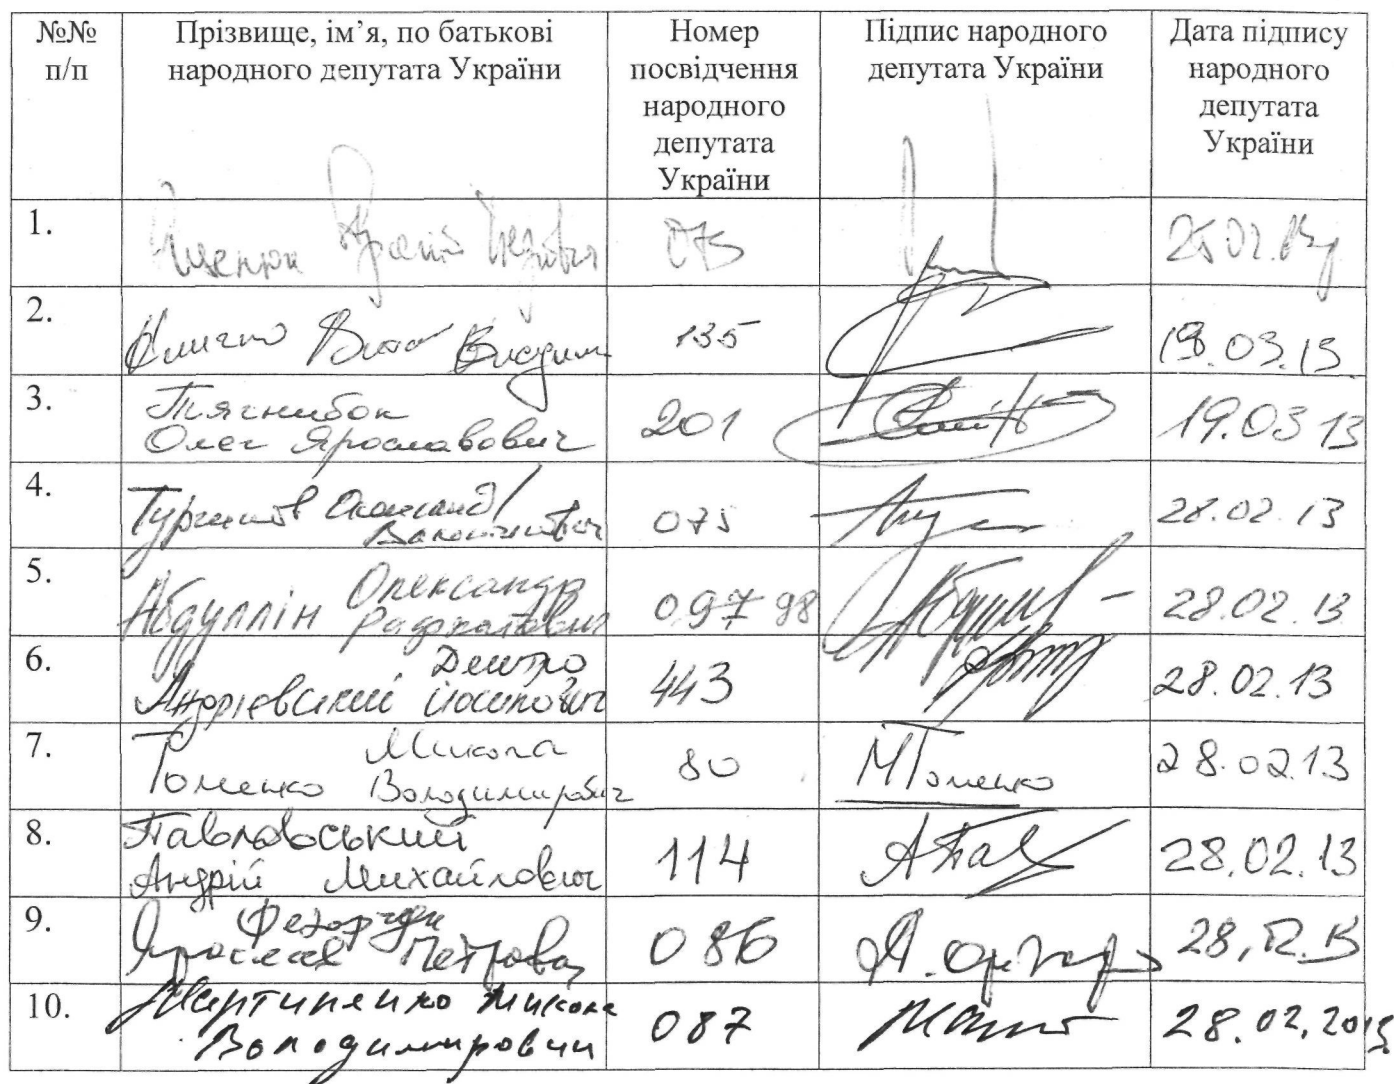 №№ п/п
Прізвище, ім'я, по батькові народного депутата України
Номер посвідчення народного депутата України
Підпис народного депутата України
Дата підпису народного депутата України
1.
Яценюк Арсеній Петрович 073 25.02.13
2.
Кличко Віталій 135 19.03.13
3.
Тягнибок
Олег Ярославович 201 19.03 13
4.
Турчинов Олександр
Валентинович 075 28.02.13
5.
Олександр
Абдуллін Рафкатович 097 98 28.02.13
6.
Дмитро
Андрієвський Йосипович 443 28.02.13
7.
Микола
Томенко Володимирович 80 МТоменко 28.02.13
8.
Павловський
Андрій Михайлович 114 АПав 28.02.13
9.
Федорчук
Ярослав Петрович 086 28.02.13
10.
Мартиненко Микола
Володимирович 087 28.02.2013